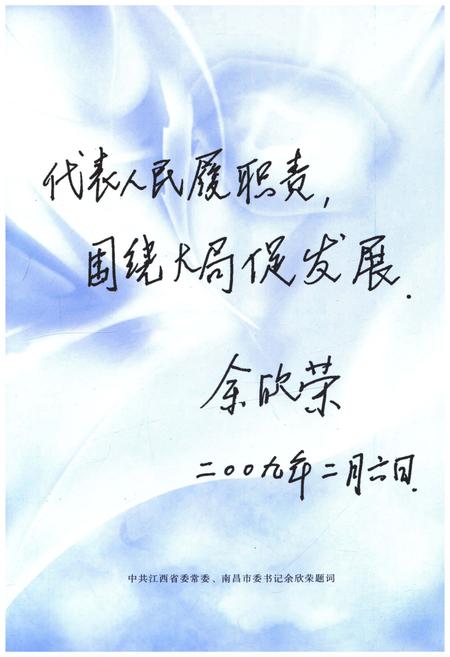 代表人民履职责,
围绕大局促发展.
余欣荣
二〇〇九年二月六日.
中共江西省委常委、南昌市委书记余欣荣题词